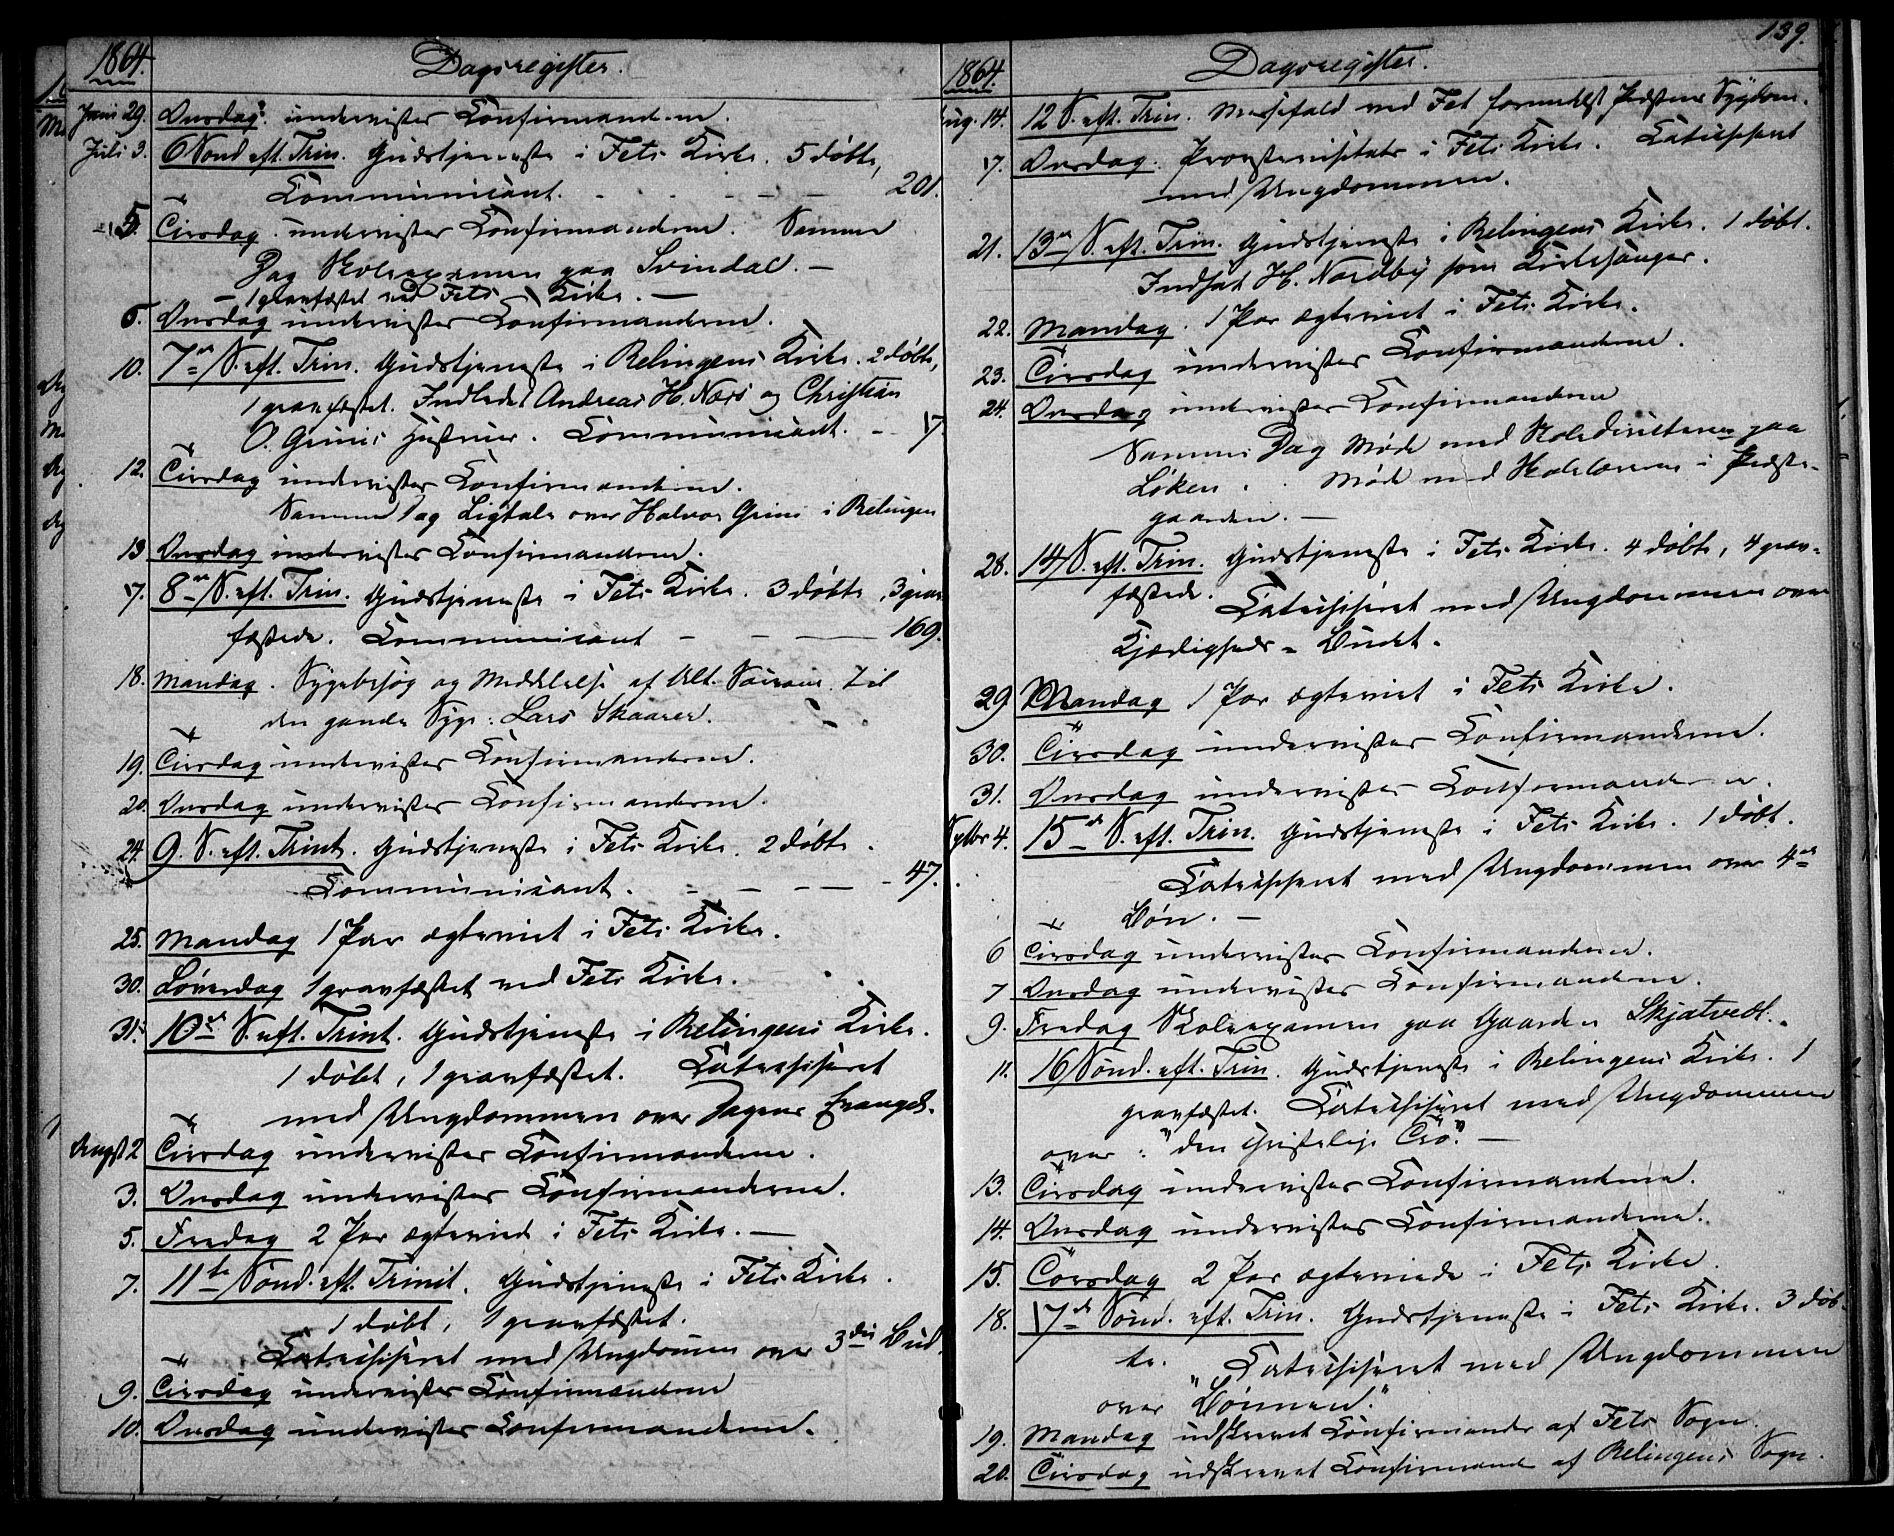 1864.
Dagsregister.
Juni 29. Onsdag undervistes Confirmanderne.
Juli 3. 6 Sönd. eft. Trin. Gudstjeneste i Fets Kirke. 5 døbte,
Communicant. - - - - 201.
5. Tirsdag undervistes Confirmanderne. Samme
Dag Skoleexamen paa Svindal. —
— 1 gravfæstet ved Fets Kirke. —
6. Onsdag undervistes Confirmanderne.
10. 7de S. eft. Trin. Gudstjeneste i Relingens Kirke. 2 døbte,
1 gravfæstet. Indledet Andreas H. Næss og Christian
O. Grinis Hustruer. Communicant. - 17.
12. Tirsdag undervistes Confirmanderne.
Samme Dag Ligtale over Halvor Grini i Relingen
13 Onsdag undervistes Confirmanderne.
17. 8de S. eft. Trin. Gudstjeneste i Fets Kirke. 3 døbte, 3 grav-
fæstede. Communicant - - — 169.
18. Mandag. Sygebesøg og Meddelelse af Alt. Sacram. til
den gamle Syge: Lars Skaarer.
19. Tirsdag undervistes Confirmanderne.
20. Onsdag undervistes Confirmanderne.
24. 9. S. eft. Trint. Gudstjeneste i Fets Kirke. 2 døbte.
Communicant. - - - — - 47.
25. Mandag 1 Par ægteviet i Fets Kirke.
30. Løverdag 1 gravfæstet ved Fets Kirke.
31. 10de S. eft. Trint. Gudstjeneste i Relingens Kirke.
1 døbt, 1 gravfæstet. Catechiseret
med Ungdommen over Dagens Evangel.
August 2 Tirsdag undervistes Confirmanderne.
3. Onsdag undervistes Confirmanderne.
5. Fredag 2 Par ægteviet i Fets Kirke. —
7. 11te Sönd. eft. Trinit. Gudstjeneste i Fets Kirke.
1 døbt, 1 gravfæstet.
Catechiseret med Ungdommen over 3die Bud.
9. Tirsdag undervistes Confirmanderne
10. Onsdag undervistes Confirmanderne.
139.
1864.
Dagsregister.
Aug. 14. 12 S. eft. Trin. Messefald ved Fet formedelst Præstens Sygdom.
17. Onsdag. Provstevisitats i Fets Kirke. Catechiseret
med Ungdommen.
21. 13de S. eft. Trin. Gudstjeneste i Relingens Kirke. 1 døbt.
Indsat H. Nordby som Kirkesanger.
22. Mandag. 1 Par ægteviet i Fets Kirke.
23. Tirsdag undervistes Confirmanderne.
24. Onsdag undervistes Confirmanderne
Samme Dag Møde med Skoledirektøren paa
Løken. Møde med Skolelærerne i Præste-
gaarden. —
28. 14 S. eft. Trin. Gudstjeneste i Fets Kirke. 4 døbte, 4 grav-
fæstede. Catechiseret med Ungdommen over
Kjærligheds-Budet.
29 Mandag 1 Par ægteviet i Fets Kirke.
30. Tirsdag undervistes Confirmanderne.
31. Onsdag undervistes Confirmanderne.
Septbr 4. 15de S. eft. Trin. Gudstjeneste i Fets Kirke. 1 døbt.
Catechiseret med Ungdommen over 4de
Bøn. —
6 Tirsdag undervistes Confirmanderne.
7 Onsdag undervistes Confirmanderne.
9. Fredag Skoleexamen paa Gaarden Skjatvedt.
11. 16 Sönd. eft. Trin. Gudstjeneste i Relingens Kirke. 1
gravfæstet. Catechiseret med Ungdommen
over: "den christelige Tro". —
13. Tirsdag undervistes Confirmanderne.
14. Onsdag undervistes Confirmanderne.
15. Torsdag 2 Par ægteviede i Fets Kirke.
18. 17de Sönd. eft. Trin. Gudstjeneste i Fets Kirke. 3 døb-
te. Catechiseret med Ungdommen
over "Bønnen."
19. Mandag udskrevet Confirmander af Fets Sogn.
20. Tirsdag udskrevet Confirmand. af Relingens Sogn.